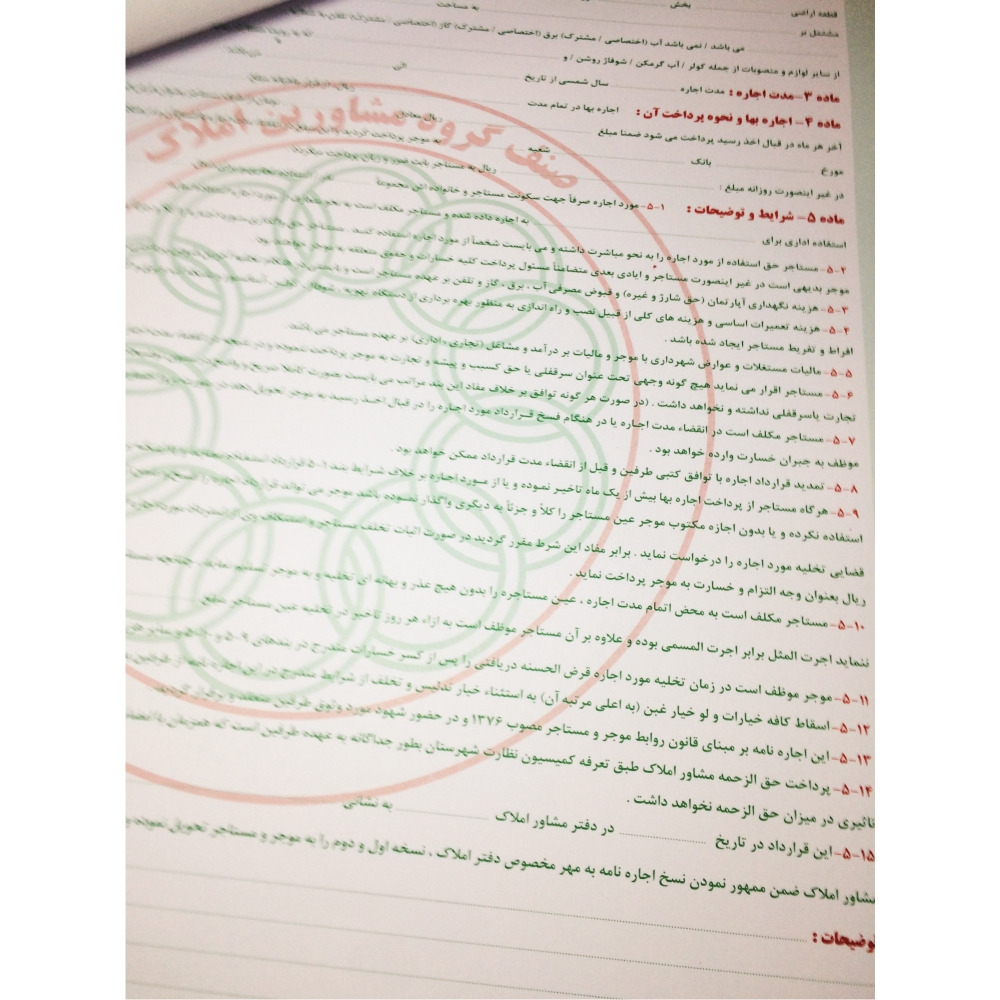 قطعه اراضی بخش
مشتمل بر به مساحت
می باشد / نمی باشد آب (اختصاصی / مشترک) برق (اختصاصی / مشترک) گاز (اختصاصی / مشترک) تلفن
از سایر لوازم و منصوبات از جمله کولر / آب گرمکن / شوفاژ روشن / و
ماده ۳- مدت اجاره : مدت اجاره سال شمسی از تاریخ الی
ماده ۴- اجاره بها و نحوه پرداخت آن : اجاره بها در تمام مدت ریال معادل
آخر هر ماه در قبال اخذ رسید پرداخت می شود ضمنا مبلغ
مورخ بانک شعبه به موجر پرداخت گردید
در غیر اینصورت روزانه مبلغ : ریال به مستاجر بابت ضرر و زیان پرداخت
ماده ۵- شرایط و توضیحات : ۱-۵- مورد اجاره صرفاً جهت سکونت مستاجر و خانواده اش مجموعاً
استفاده اداری برای به اجاره داده شده و مستاجر مکلف است به نحو
۲-۵- مستاجر حق استفاده از مورد اجاره را به نحو مباشرت داشته و می بایست شخصاً از مورد اجاره استفاده کند .
موجر بدیهی است در غیر اینصورت مستاجر و ایادی بعدی متضامناً مسئول پرداخت کلیه خسارات و حقوق متعلقه به موجر خواهند بود.
۳-۵- هزینه نگهداری آپارتمان (حق شارژ و غیره) و قبوض مصرفی آب ، برق ، گاز و تلفن بر عهده مستاجر است و
۴-۵- هزینه تعمیرات اساسی و هزینه های کلی از قبیل نصب و راه اندازی به منظور بهره برداری از دستگاه تهویه ، شوفاژ ، کولر ، آسانسور
افراط و تفریط مستاجر ایجاد شده باشد .
۵-۵- مالیات مستغلات و عوارض شهرداری با موجر و مالیات بر درآمد و مشاغل (تجاری ، اداری) بر عهده مستاجر می باشد.
۶-۵- مستاجر اقرار می نماید هیچ گونه وجهی تحت عنوان سرقفلی یا حق کسب و پیشه و تجارت به موجر پرداخت ننموده و در نتیجه
تجارت یا سرقفلی نداشته و نخواهد داشت . (در صورت هر گونه توافق بر خلاف مفاد این بند مراتب می بایست بصورت کاملا صریح و
۷-۵- مستاجر مکلف است در انقضاء مدت اجاره یا در هنگام فسخ قرارداد مورد اجاره را در قبال اخذ رسید به موجر تحویل
موظف به جبران خسارت وارده خواهد بود .
۸-۵- تمدید قرارداد اجاره با توافق کتبی طرفین و قبل از انقضاء مدت قرارداد ممکن خواهد بود .
۹-۵- هرگاه مستاجر از پرداخت اجاره بها بیش از یک ماه تاخیر نموده و یا از مورد اجاره بر خلاف شرایط بند ۱-۵ قرارداد استفاده
استفاده نکرده و یا بدون اجازه مکتوب موجر عین مستاجر را کلاً و جزئاً به دیگری واگذار نموده باشد موجر می تواند قرارداد اجاره را
قضایی تخلیه مورد اجاره را درخواست نماید . برابر مفاد این شرط مقرر گردید در صورت اثبات تخلف مستاجر و استنکاف وی
ریال بعنوان وجه التزام و خسارت به موجر پرداخت نماید .
۱۰-۵- مستاجر مکلف است به محض اتمام مدت اجاره ، عین مستاجره را بدون هیچ عذر و بهانه ای تخلیه و به موجر تسلیم نماید. چنانچه
ننماید اجرت المثل برابر اجرت المسمی بوده و علاوه بر آن مستاجر موظف است به ازاء هر روز تاخیر در تخلیه عین مستاجر مبلغ
۱۱-۵- موجر موظف است در زمان تخلیه مورد اجاره قرض الحسنه دریافتی را پس از کسر خسارات مندرج در بندهای ۹-۵ و
۱۲-۵- اسقاط کافه خیارات و لو خیار غبن (به اعلی مرتبه آن) به استثناء خیار تدلیس و تخلف از شرایط مندرج در این اجاره نامه از طرفین
۱۳-۵- این اجاره نامه بر مبنای قانون روابط موجر و مستاجر مصوب ۱۳۷۶ و در حضور شهود مورد وثوق طرفین منعقد و برقرار گردید.
۱۴-۵- پرداخت حق الزحمه مشاور املاک طبق تعرفه کمیسیون نظارت شهرستان بطور جداگانه به عهده طرفین است که همزمان با
تاثیری در میزان حق الزحمه نخواهد داشت .
۱۵-۵- این قرارداد در تاریخ در دفتر مشاور املاک به نشانی
مشاور املاک ضمن ممهور نمودن نسخ اجاره نامه به مهر مخصوص دفتر املاک ، نسخه اول و دوم را به موجر و مستاجر تحویل نموده و
توضیحات :
صنف گروه مشاورین املاک